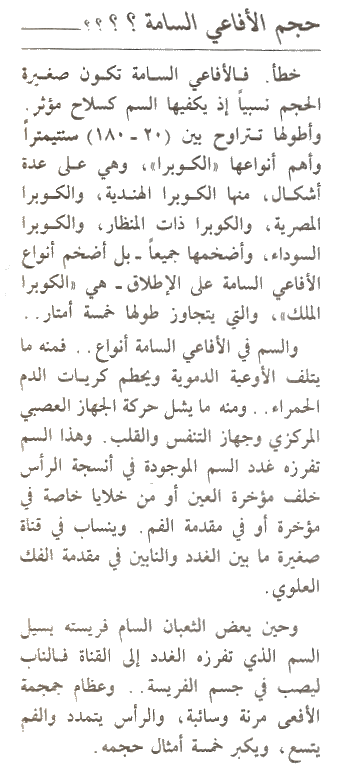 حجم الأفاعي السامة ؟ ؟ ؟؟
خطأ. فالأفاعي السامة تكون صغيرة
الحجم نسبياً إذ يكفيها السم كسلاح مؤثر.
وأطولها تتراوح بين (٢٠ - ١٨٠) سنتيمتراً
وأهم أنواعها «الكوبرا»، وهي على عدة
أشكال، منها الكوبرا الهندية، والكوبرا
المصرية، والكوبرا ذات المنظار، والكوبرا
السوداء، وأضخمها جميعاً - بل أضخم أنواع
الأفاعي السامة على الإطلاق - هي «الكوبرا
الملك»، والتي يتجاوز طولها خمسة أمتار..
والسم في الأفاعي السامة أنواع.. فمنه ما
يتلف الأوعية الدموية ويحطم كريات الدم
الحمراء.. ومنه ما يشل حركة الجهاز العصبي
المركزي وجهاز التنفس والقلب. وهذا السم
تفرزه غدد السم الموجودة في أنسجة الرأس
خلف مؤخرة العين أو من خلايا خاصة في
مؤخرة أو في مقدمة الفم. وينساب في قناة
صغيرة ما بين الغدد والنابين في مقدمة الفك
العلوي.
وحين يعض الثعبان السام فريسته يسيل
السم الذي تفرزه الغدد إلى القناة فالناب
ليصب في جسم الفريسة.. وعظام جمجمة
الأفعى مرنة وسائبة، والرأس يتمدد والفم
يتسع، ويكبر خمسة أمثال حجمه.